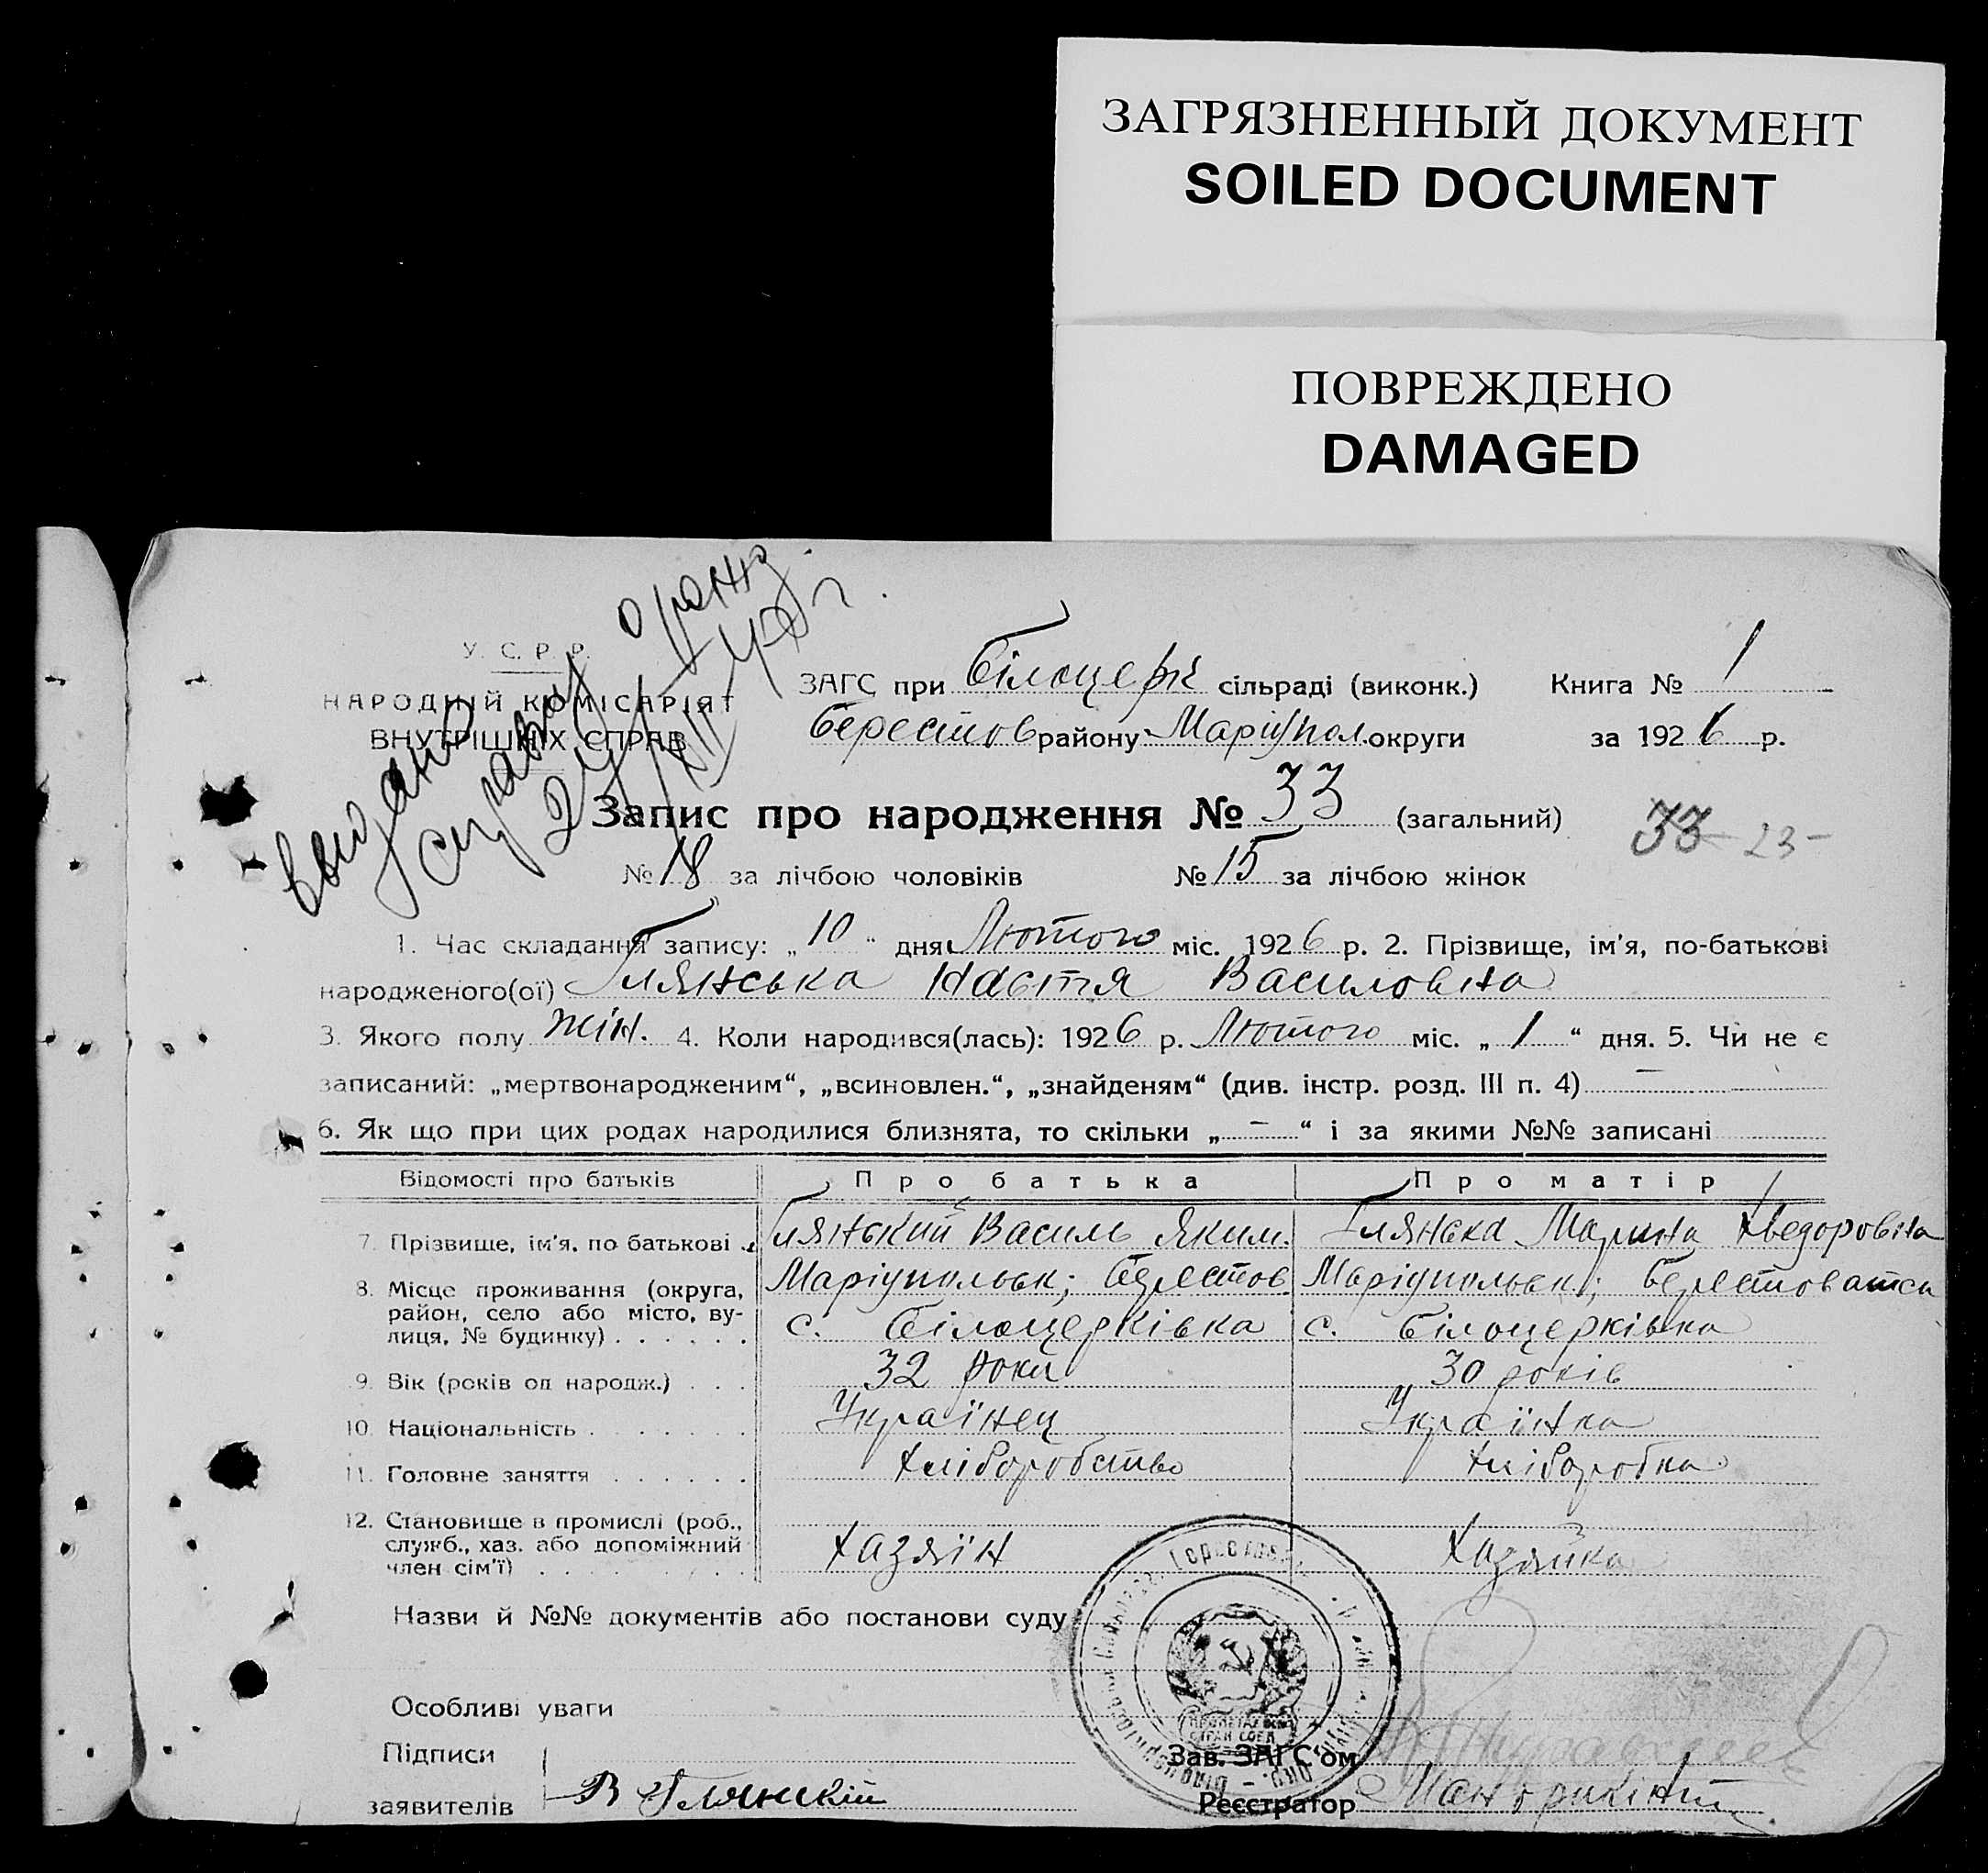 ЗАГРЯЗНЕННЫЙ ДОКУМЕНТ
SOILED DOCUMENT
ПОВРЕЖДЕНО
DAMAGED
У. С. Р. Р.
НАРОДНІЙ КОМІСАРІЯТ
ВНУТРІШНІХ СПРАВ
ЗАГС при Білоцерк сільраді (виконк.) Книга № 1
Берестов району Маріупол. округи за 1926 р.
Запис про народження № 33 (загальний) 33 23-
№ 18 за лічбою чоловіків № 15 за лічбою жінок
1. Час складання запису: „10“ дня Лютого міс. 1926 р. 2. Прізвище, ім'я, по-батькові
народженого(ої) Глянська Настя Василовна
3. Якого полу жін. 4. Коли народився(лась): 1926 р. Лютого міс. „1“ дня. 5. Чи не є
записаний: „мертвонародженим“, „всиновлен.“, „знайденям“ (див. інстр. розд. III п. 4) –
6. Як що при цих родах народилися близнята, то скільки „–“ і за якими №№ записані
Відомості про батьків Про батька Про матір
7. Прізвище, ім'я, по батькові Глянський Василь Яким. Глянска Марина Хведоровна
8. Місце проживання (округа, район, село або місто, вулиця, № будинку) Маріупольск; Берестов. Маріупольск;
с. Білоцерківка с. Білоцерківка
9. Вік (років од народж.) 32 роки 30 років
10. Національність Українец Українка
11. Головне заняття хліборобство хліборобка
12. Становище в промислі (роб., служб., хаз. або допоміжний член сім'ї) хазяїн хазяйка
Назви й №№ документів або постанови суду
Особливі уваги
Підписи
заявителів В Глянский
Зав. ЗАГС'ом
Реєстратор